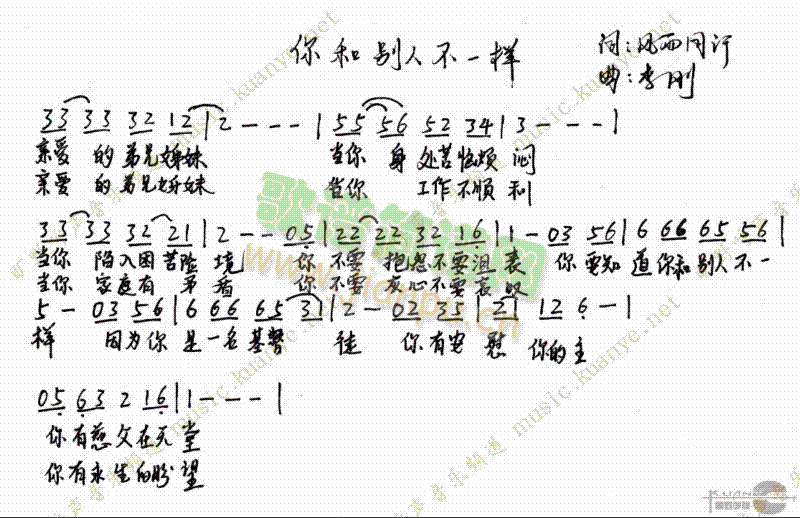 你和别人不一样
词:风雨同行
曲:李刚
33 33 32 12 | 2 - - - | 55 56 52 34 | 3 - - - |
亲爱 的弟兄姊妹 当你 身处苦恼烦 闷
亲爱 的弟兄姊妹 当你 工作不顺 利
33 33 32 21 | 2 - - 05 | 22 22 32 16 | 1 - 03 56 | 6 66 65 56 |
当你 陷入困苦险 境 你 不要 抱怨不要沮 丧 你 要知 道 你和 别人不一
当你 家庭有 你 不要 灰心不要哀叹
5 - 03 56 | 6 66 65 31 | 2 - 02 35 | 2 | 12 6 - |
样 因为你 是一名基督 徒 你有安 慰 你的主
05 63 2 16 | 1 - - - |
你有慈父在天 堂
你有永生的盼 望
矿声音乐频道 music.kuanye.net
歌谱简谱网
www.jianpu.cn
KUANYE